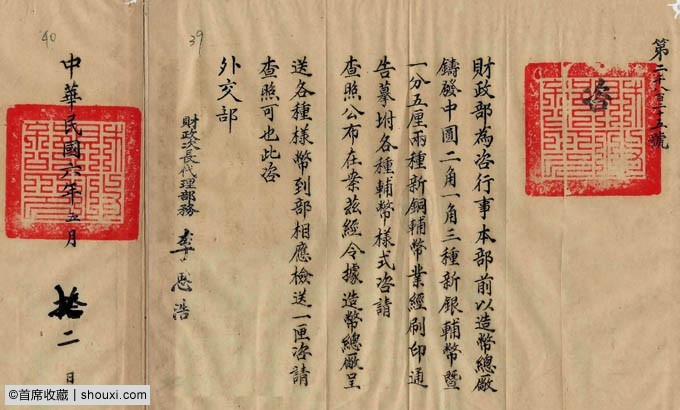 咨
財政部為咨行事本部前以造幣總廠
鑄發中圓二角一角三種新銀輔幣暨
一分五厘兩種新銅輔幣業經刷印通
告摹坿各種輔幣樣式咨請
查照公布在案茲經令據造幣總廠呈
送各種樣幣到部相應檢送一匣咨請
查照可也此咨
外交部
財政次長代理部務 李思浩
39
中華民國六年五月 拾二 日
40
©首席收藏 | shouxi.com